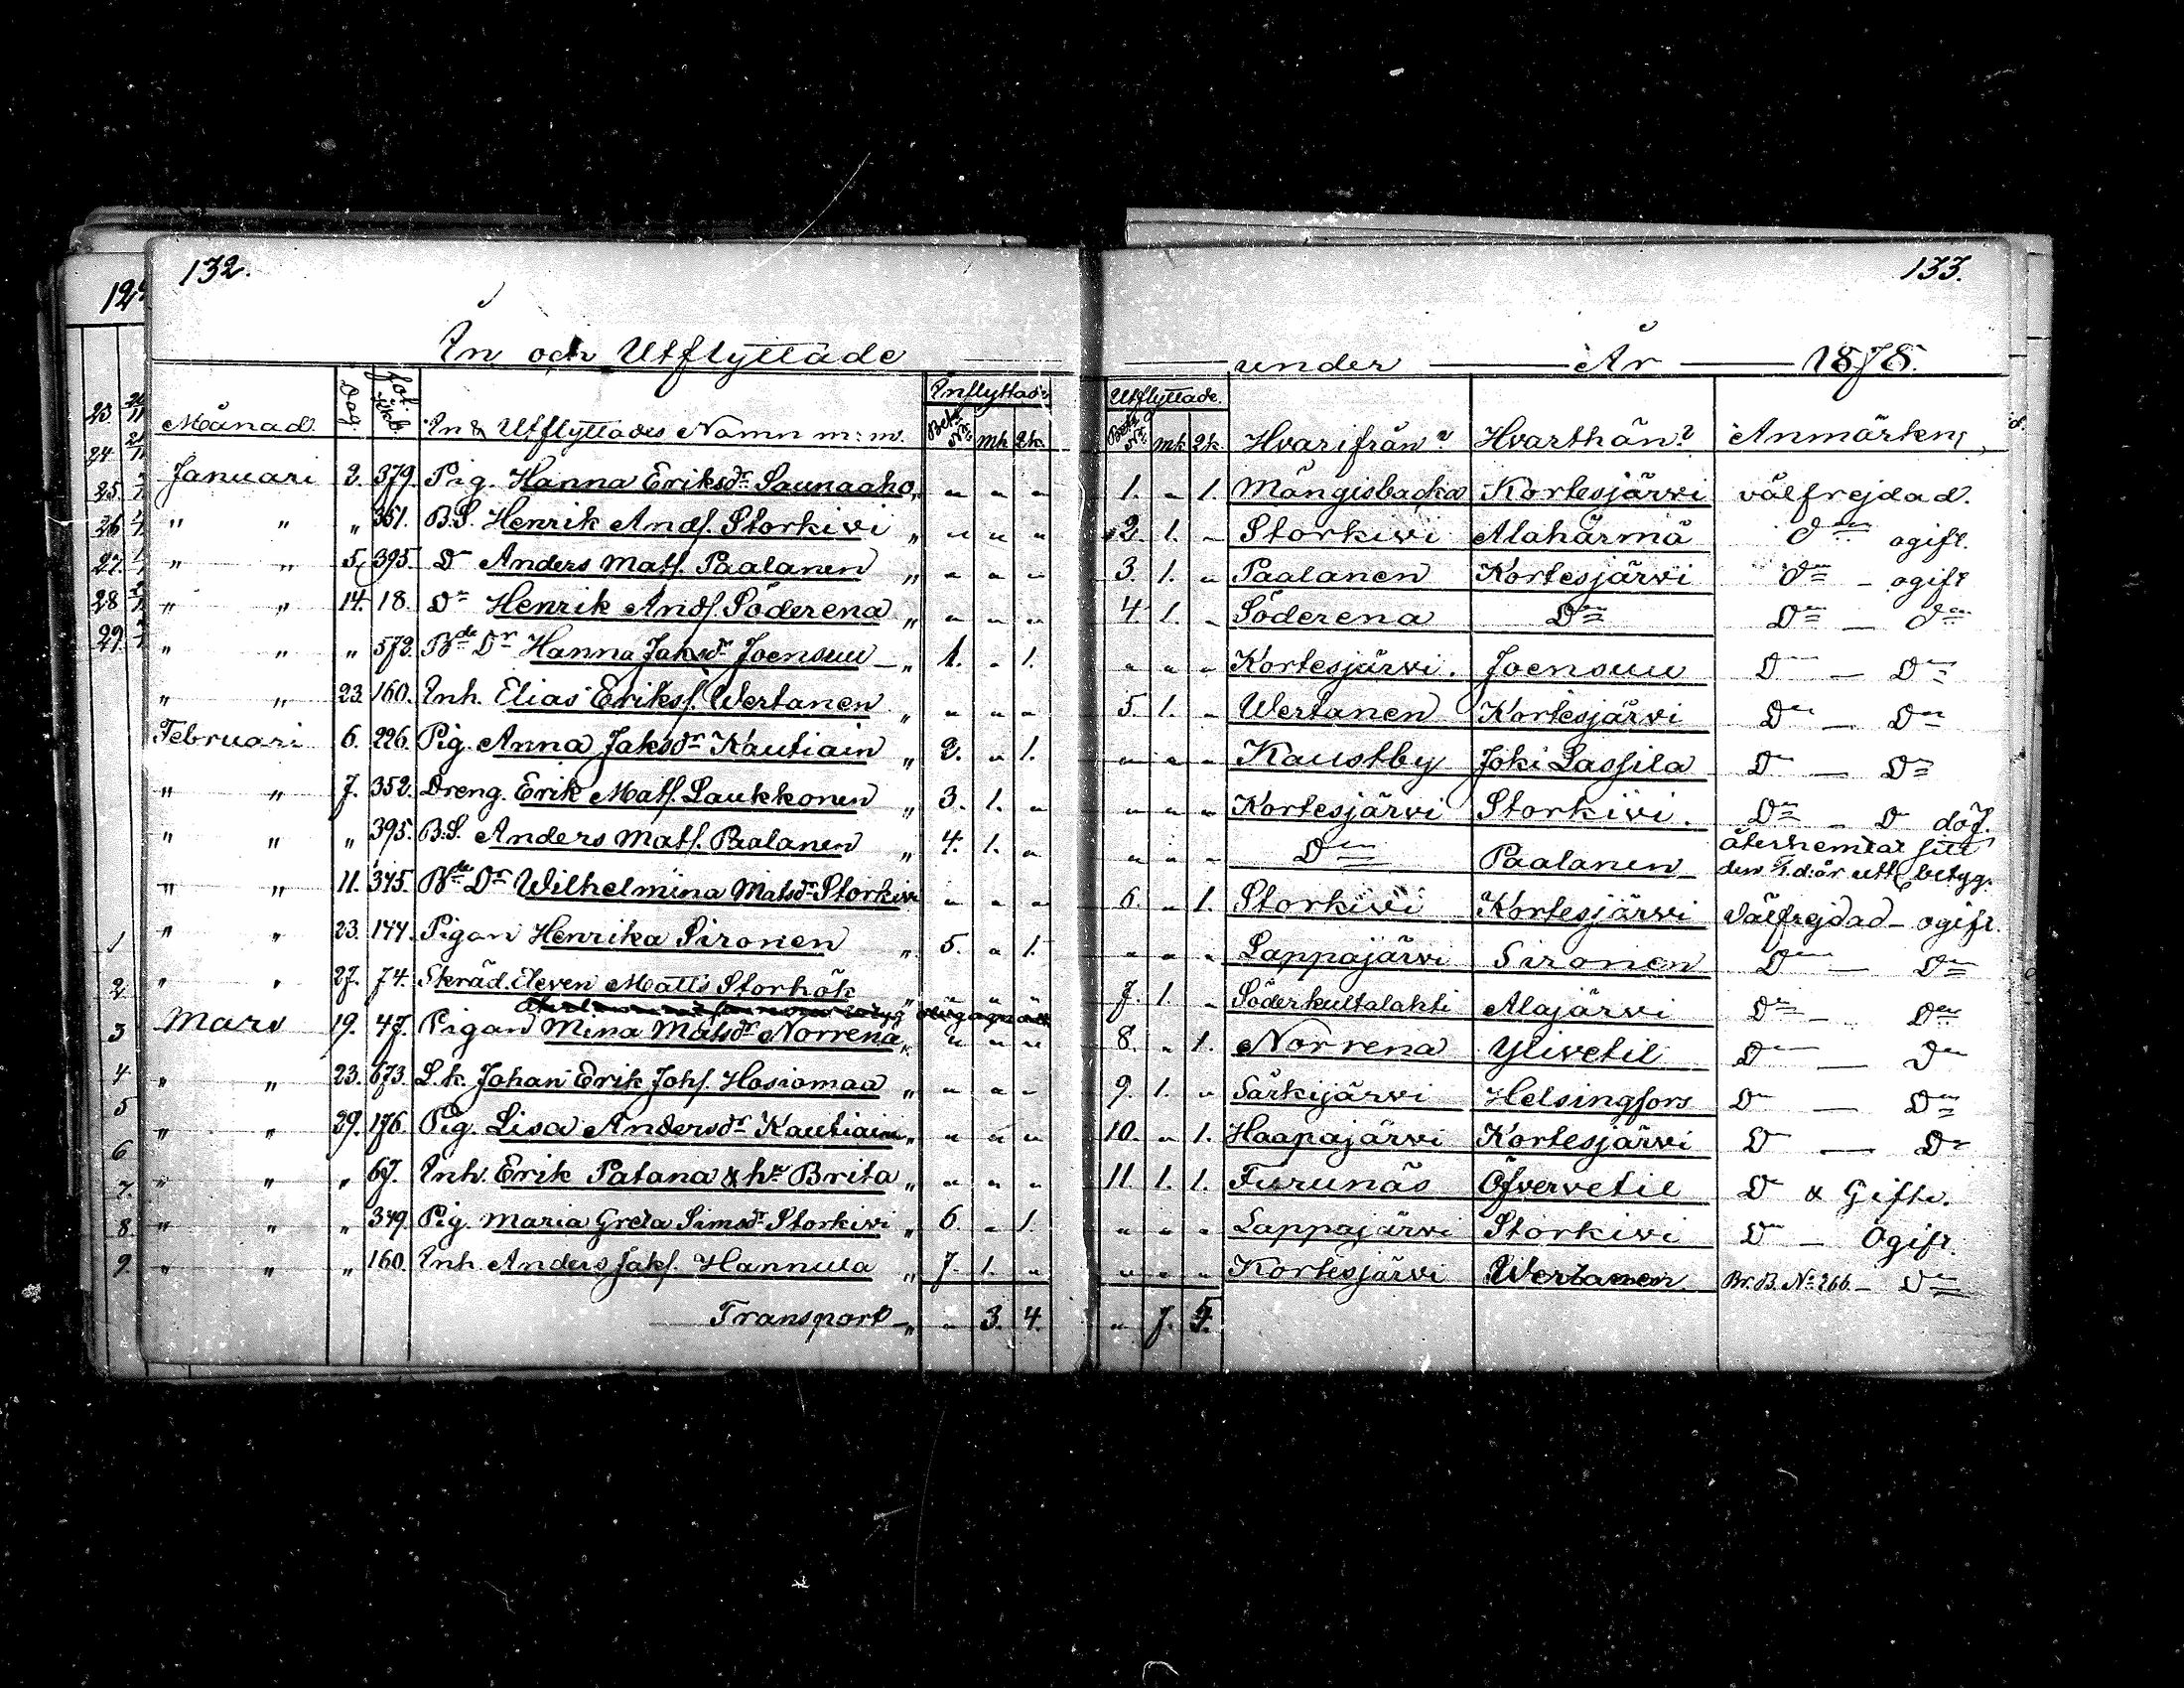 132.
133.
In och Utflyttade under År 1878.
Månad. Dag. fol. i kb. In & Utflyttades Namn m:m. Inflyttade Bets № mk qk. Utflyttade. Bets № mk qk. Hvarifrån? Hvarthän? Anmärkn;
Januari 2. 379. Pig. Hanna Eriksdr Saunaaho „ „ „ „ 1. „ 1. Mängisbacka Kortesjärvi välfrejdad.
„ „ „ 351. B.S. Henrik Andf. Storkivi „ „ „ „ 2. 1. „ Storkivi Alahärmä Den ogift.
„ „ 5. 395. Dn Anders Matf. Paalanen „ „ „ „ 3. 1. „ Paalanen Kortesjärvi Den – ogift
„ „ 14. 18. Dn Henrik Andf. Söderena „ „ „ „ 4. 1. „ Söderena Den Den – Den
„ „ „ 572. Bde Dr Hanna Jaksdr Joensuu „ 1. „ 1. „ „ „ Kortesjärvi. Joensuu Dn – Den
„ „ 23. 160. Inh. Elias Eriksf. Wertanen „ „ „ „ 5. 1. „ Wertanen Kortesjärvi Den – Den
Februari 6. 226. Pig. Anna Jaksdr Kautiain „ 2. „ 1. „ „ „ Kaustby Joki Lassila Dn – Dn
„ „ 7. 352. Dreng. Erik Matf. Laukkonen „ 3. 1. „ „ „ „ Kortesjärvi Storkivi. Dn – Dn döf.
„ „ „ 395. B.S. Anders Matf. Paalanen „ 4. 1. „ „ „ „ Den Paalanen återhemtat sitt
den d:år utt. betyg.
„ „ 11. 345. Bde Dr Wilhelmina Matsdr Storkivi „ „ „ 6. „ 1. Storkivi Kortesjärvi Välfrejdad – ogift.
„ „ 23. 144. Pigan Henrika Sironen „ 5. „ 1. „ „ „ Lappajärvi Sironen Den – Den
„ „ 27. 74. Skräd. Eleven Matts Storhök „ „ „ „ 7. 1. „ Söderkultalahti Alajärvi Den – Den
Mars 19. 47. Pigan Mina Matsdr Norrena „ „ „ „ 8. „ 1. Norrena Ylivetil Den – Den
„ „ 23. 673. L.k. Johan Erik Johf. Hosiomaa „ „ „ „ 9. 1. „ Särkijärvi Helsingfors Dn – Den
„ „ 29. 176. Pig. Lisa Andersdr Kautiain „ „ „ „ 10. „ 1. Haapajärvi Kortesjärvi Dn – Dn
„ „ „ 67. Inh. Erik Patana & hu Brita „ „ „ „ 11. 1. 1. Furunäs Öfvervetil Dn & Gifte.
„ „ „ 349. Pig. Maria Greta Simsdr Storkivi „ 6. „ 1. „ „ „ Lappajärvi Storkivi Dn – Ogift.
„ „ „ 160. Inh. Anders Jakf. Hannula „ 7. 1. „ „ „ „ Kortesjärvi Wertanen. Br. B. № 266. – Den
Transport „ „ 3. 4. „ 7. 5.